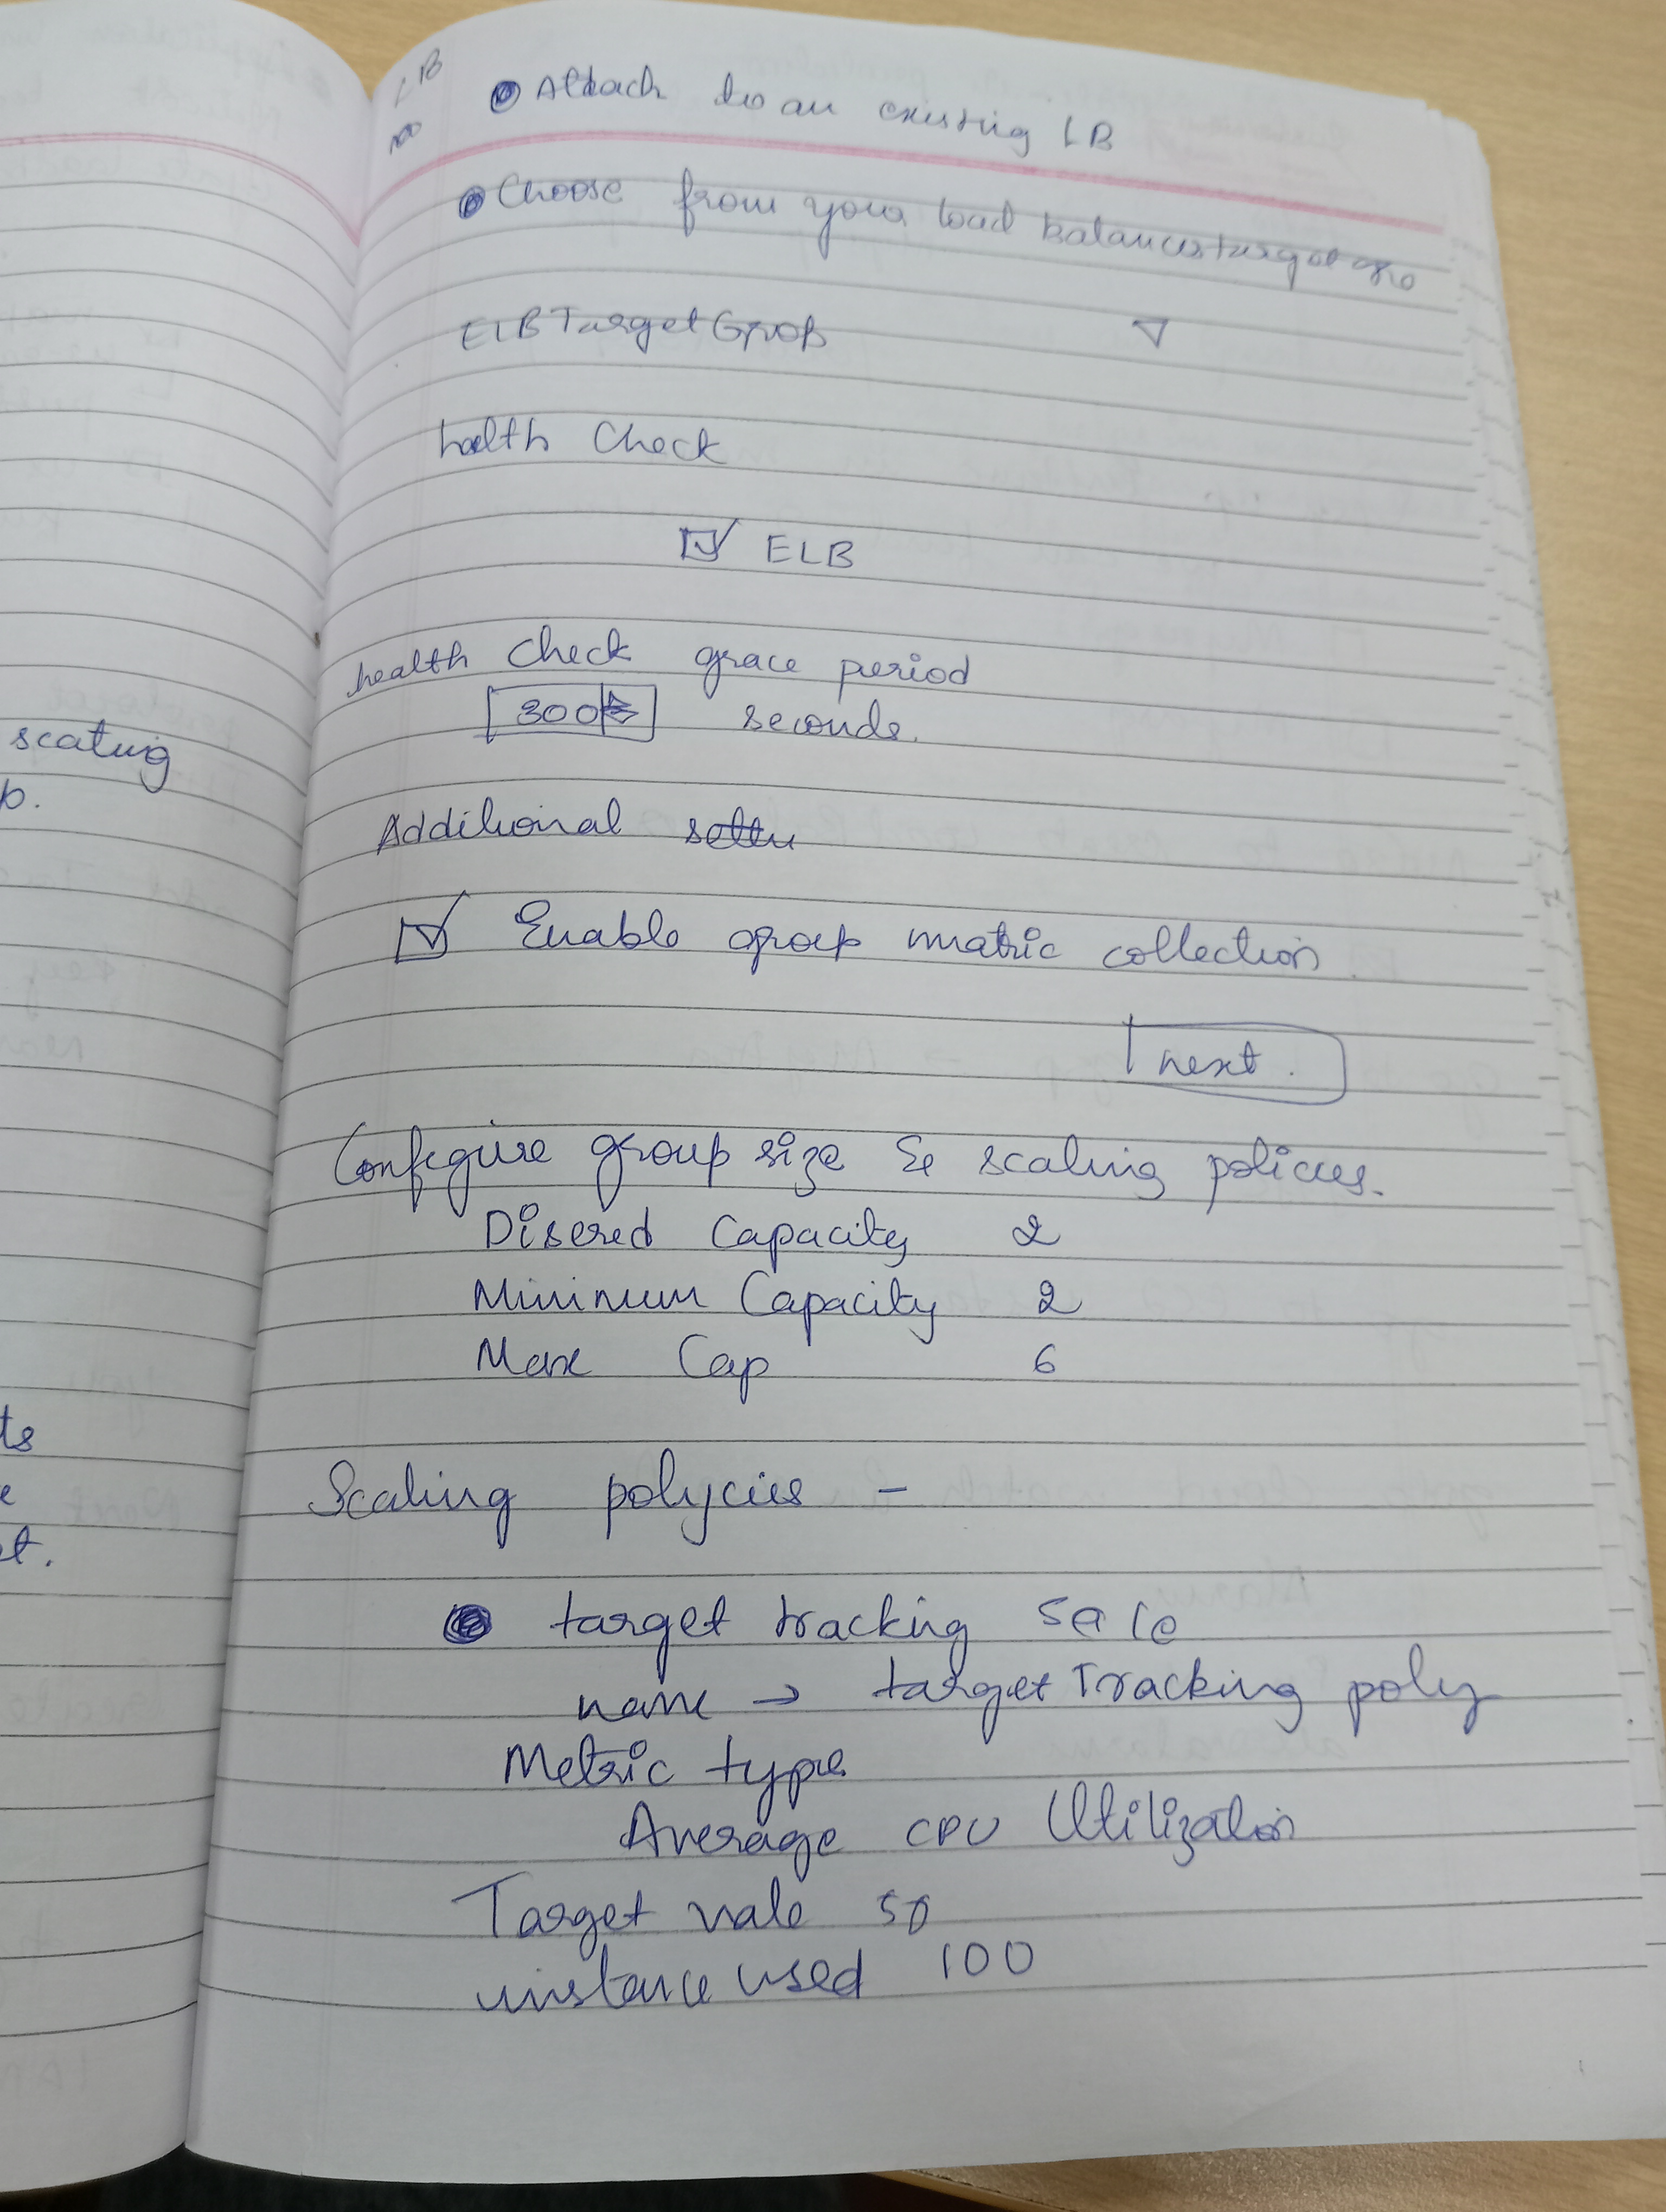 scaling
p.
ts
e
et.
LB
● Attach to an existing LB
● Choose from your load balancer target gro
ELBTargetGroup
health Check
☑ ELB
health Check grace period
300 seconds.
Additional settu
☑ Enable group matric collection.
next.
Configure group size & scaling policies.
Disered Capacity 2
Minimum Capacity 2
Max Cap 6
Scaling polycies -
● target tracking scale
name → target Tracking poly
Metric type
Average CPU Utilization
Target vale 50
instance used 100